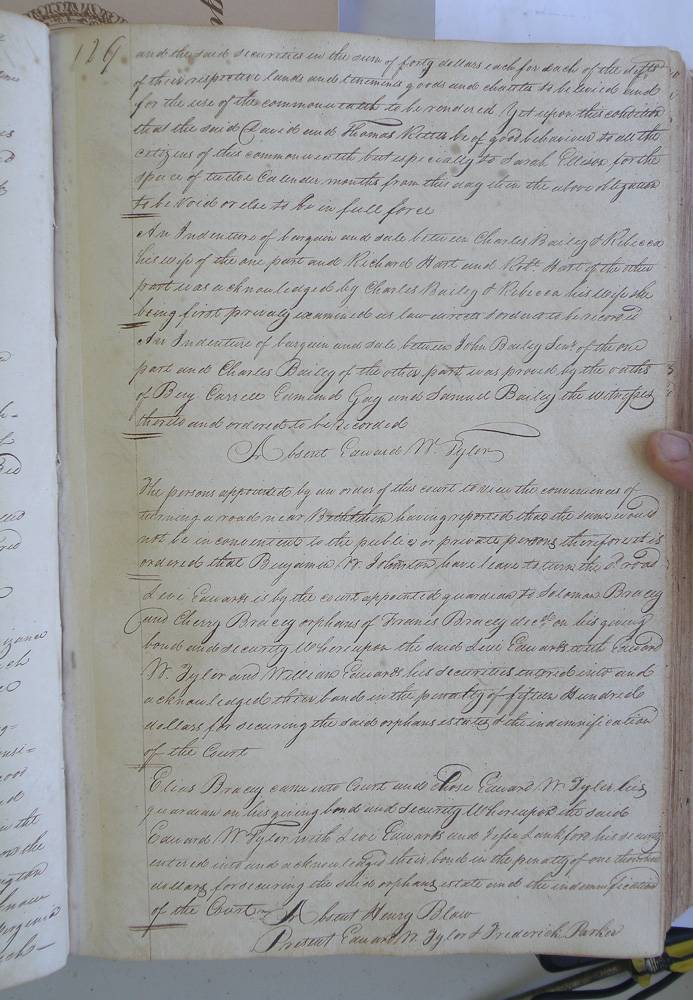 126
and the said securities in the sum of forty dollars each for each of the defts
of their respective lands and tenements goods and chattels to be levied and
for the use of the commonwealth to be rendered Yet upon this condition
that the said David and Thomas be of good behaviour to all the
citizens of this commonwealth but especially to Sarah Ellison for the
space of twelve Calender months from this day then the above obligation
to be void or else to be in full force
An Indenture of bargain and sale between Charles Bailey & Rebecca
his wife of the one part and Richard Hart and Robt. Hart of the other
part was acknowledged by Charles Bailey & Rebecca his wife she
being first privaly examined as law directs & ordered to be recorded
An Indenture of bargain and sale between John Bailey Senr. of the one
part and Charles Bailey of the other part was proved by the oaths
of Benj Carrell Edmund Gay and Samuel Bailey the witnesses
thereto and ordered to be recorded
Absent Edward W. Tyler
The persons appointed by an order of this court to view the conveniences of
turning a road near having reported that the same would
not be inconvenient to the public or private persons therefore it is
ordered that Benjamin W. Johnston have leave to turn the sd. road
Levi Edwards is by the court appointed guardian to Solomon Bracey
and Cherry Bracey orphans of Francis Bracey decd. on his giving
bond and security Whereupon the said Levi Edwards with Edward
W. Tyler and William Edwards his securities entered into and
acknowledged their bond in the penalty of fifteen Hundred
dollars for securing the said orphans estates & the indemnification
of the Court
Elias Bracey came into Court and chose Edward W. Tyler his
guardian on his giving bond and security Whereupon the said
Edward W. Tyler with Levi Edwards and Jesse Lankford his security
entered into and acknowledged their bond in the penalty of one thousand
dollars for securing the said orphans estate and the indemnification
of the Court
Absent Henry Blow
Present Edward W. Tyler & Frederick Parker